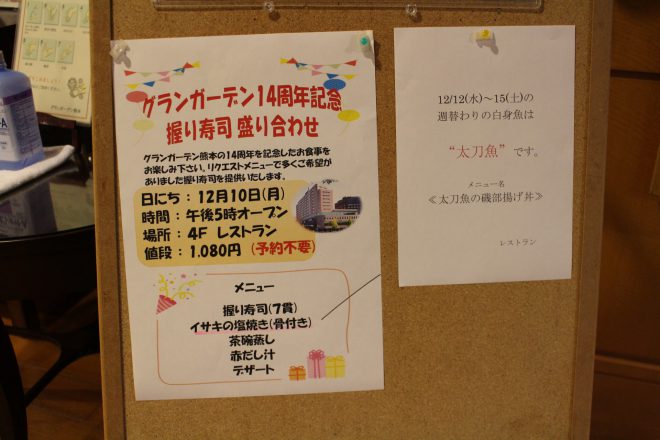 グランガーデン14周年記念
握り寿司 盛り合わせ
グランガーデン熊本の14周年を記念したお食事を
お楽しみ下さい。リクエストメニューで多くご希望が
ありました握り寿司を提供いたします。
日にち：12月10日(月)
時間：午後5時オープン
場所：4F レストラン
値段：1.080円 (予約不要)
メニュー
握り寿司(7貫)
イサキの塩焼き(骨付き)
茶碗蒸し
赤だし汁
デザート
12/12(水)～15(土)の
週替わりの白身魚は
“太刀魚”です。
メニュー名
≪太刀魚の磯部揚げ丼≫
レストラン